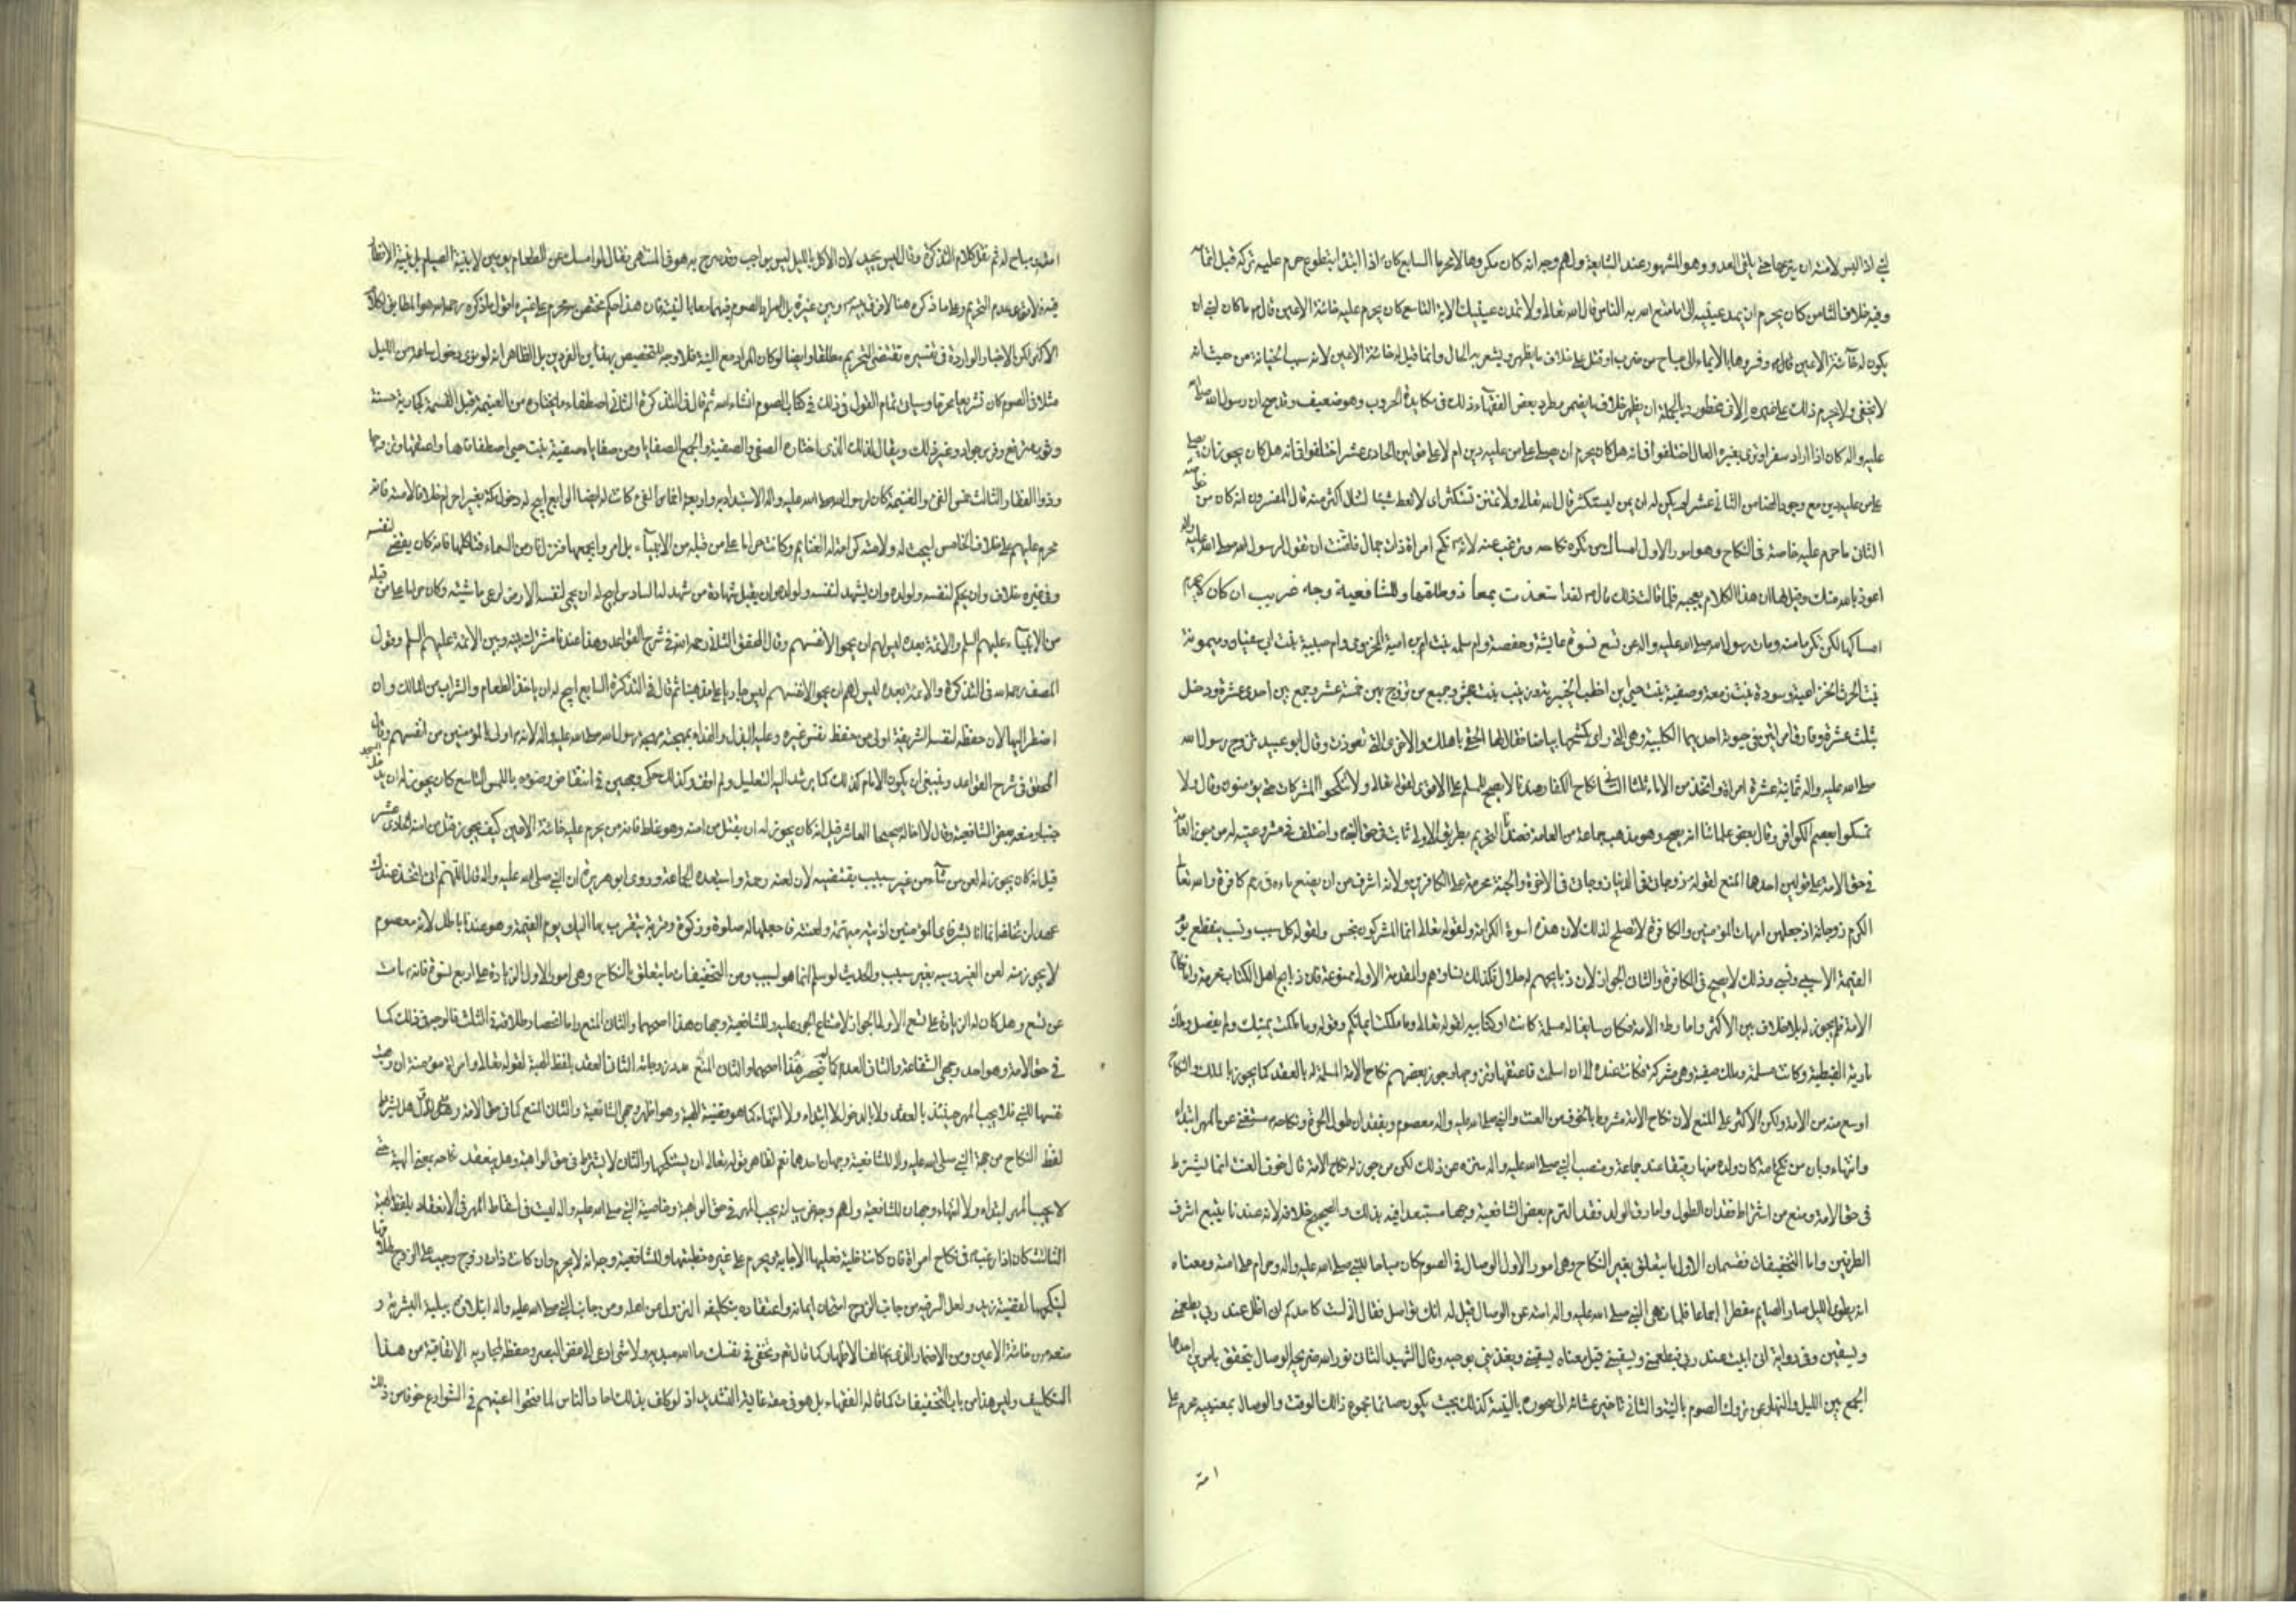 لنبي اذا لبس لامته ان ينزعها حتى يلقى العدو وهو المشهور عند الشافعية ولهم وجه انه كان مكروها لا محرما السابع كان اذا ابتدا بتطوع حرم عليه تركه قبل اتمامه
وفيه خلاف الثامن كان يحرم ان يمد عينيه الى ما متع الله به الناس قال الله تعالى ولا تمدن عينيك الاية التاسع كان يحرم عليه خائنة الاعين قال ما كان لنبي ان
يكون له خائنة الاعين وفسروها بالايماء الى مباح من ضرب او قتل على خلاف ما يظهر ويشعر به الحال وانما قيل له خائنة الاعين لانه سبب الخيانة من حيث انه
لا يخفى ولا يحرم ذلك على غيره الا في محظور وبالجملة ان يظهر خلاف ما يضمر بعض الفقهاء ذلك في مكايدة الحروب وهو ضعيف وقد صح ان رسول الله صلى الله
عليه واله كان اذا اراد سفرا ورى بغيره العاشر اختلفوا في انه هل كان يحرم ان يصلي على من عليه دين ام لا على قولين الحادي عشر اختلفوا في انه هل كان يجوز ان يصلي
على من عليه دين مع وجود الضامن الثاني عشر لم يكن له ان يمن ليستكثر قال الله تعالى ولا تمنن تستكثر اى لا تعط شيئا لتنال اكثر منه قال المفسرون انه كان من خواصه
الثاني ما حرم عليه خاصة في النكاح وهو امور الاول امساك من تكره نكاحه وترغب عنه لانه نكح امراة ذات جمال فلقنت ان تقول لرسول الله صلى الله عليه واله
اعوذ بالله منك وقيل لها ان هذا الكلام يعجبه فلما قالت ذلك قال لقد استعذت بمعاذ وطلقها وللشافعية وجه غريب انه كان لا يحرم
امساكها لكن تكرما منه ومات رسول الله صلى الله عليه واله عن تسع نسوة عايشة وحفصة وام سلمة بنت ابي امية المخزومي وام حبيبة بنت ابي سفيان وميمونة
بنت الحرث الخزاعية وسودة بنت زمعة وصفية بنت حيي بن اخطب الخيبرية وزينب بنت جحش وجميع من تزوج بهن خمسة عشر وجمع بين احدى عشرة ودخل
بثلث عشرة وفارق امراتين في حيوته احديهما الكلبية وهي التي راى بكشحها بياضا فقال لها الحقي باهلك والاخرى التي تعوذت وقال ابو عبيد تزوج رسول الله
صلى الله عليه واله ثمانية عشرة امراة واتخذ من الاماء ثلثا الثاني نكاح الكفار عندنا لا يصح للمسلم على الاقوى لقوله تعالى ولا تنكحوا المشركات حتى يؤمن وقال ولا
تمسكوا بعصم الكوافر وقال بعض علمائنا انه يصح وهو مذهب جماعة من العامة فعندنا التحريم بطريق الاولى ثابت في حق النبي
في حق الامة على قولين احدهما المنع لقوله زوجاتي في الدنيا زوجاتي في الاخرة والجنة محرمة على الكافرين ولانه اشرف من ان يضع ماءه في رحم كافرة والله تعالى
اكرم زوجاته اذ جعلهن امهات المؤمنين والكافرة لا تصلح لذلك لان هذه اسوة الكرامة ولقوله تعالى انما المشركون نجس ولقوله كل سبب ونسب ينقطع يوم
القيمة الا سببي ونسبي وذلك لا يصح في الكافرة والثاني الجواز لان ذبايحهم له حلال فكذلك نساؤهم والمقدمة الاولى ممنوعة فان ذبايح اهل الكتاب محرمة
الامة فلم يجوز له بلا خلاف بين الاكثر واما وطء الامة فكان سايغا له مسلمة كانت او كتابية لقوله تعالى وما ملكت ايمانكم وقوله وما ملكت يمينك ولم يفصل وملك
مارية القبطية وكانت مسلمة وملك صفية وهي مشركة فكانت عنده الى ان اسلمت فاعتقها وتزوجها وجوز بعضهم نكاح الامة المسلمة له بالعقد كما يجوز بالملك
اوسع منه من الامة ولكن الاكثر على المنع لان نكاح الامة مشروط بالخوف من العنت والنبي صلى الله عليه واله معصوم وبفقدان طول الحرة ونكاحه مستغنى عن المهر ابتداء
وانتهاء وبان من نكح امة كان ولده منها رقيقا عند جماعة ومنصب النبي صلى الله عليه واله منزه عن ذلك لكن من جوز له نكاح الامة قال خوف العنت انما يشترط
في حق الامة ومنع من اشتراط فقدان الطول واما رق الولد فقد التزم بعض الشافعية وجها مستبعدا فيه بذلك والصحيح خلافه لانه عندنا يتبع اشرف
الطرفين واما التخفيفات فقسمان الاول ما يتعلق بغير النكاح وهي امور الاول الوصال في الصوم كان مباحا للنبي صلى الله عليه واله وحرام على امته ومعناه
انه يطوى الليل صار الصايم مفطرا اجماعا فلما نهى النبي صلى الله عليه واله امته عن الوصال قيل له انك تواصل فقال لست كاحدكم اني اظل عند ربي يطعمني
ويسقين وفي رواية اني ابيت عند ربي فيطعمني ويسقيني قيل معناه يسقيني ويغذيني بوحيه وقال الشهيد الثاني الوصال يتحقق بامرين احدهما
الجمع بين الليل والنهار عن تروك الصوم بالنية والثاني تاخير عشائه الى سحوره بالنية كذلك بحيث يكون صائما مجموع ذلك الوقت والوصال بمعنييه محرم على
امته
امته مباح له ثم نقل كلام التذكرة وقال ليس بجيد لان الاكل بالليل ليس بواجب وقد صرح به هو في المنتهى فقال لو امسك عن الطعام يومين لا بنية الصيام بل بنية الافطار
الاكثر لكن الاخبار الواردة في تفسيره تقتضي التحريم مطلقا وايضا لو كان المراد مع النية فلا وجه للتخصيص بهذين الفردين بل الظاهر انه لو نوى دخول ساعة من الليل
مثلا في الصوم كان تشريعا محرما وسياتي تمام القول في ذلك في كتاب الصوم انشاء الله ثم قال في التذكرة الثاني اصطفاء ما يختاره من الغنيمة قبل القسمة كجارية حسنة
وثوب مرتفع وفرس جواد وغير ذلك ويقال لذلك الذي اختاره الصفي والصفية والجمع الصفايا ومن صفاياه صفية بنت حيي اصطفاها واعتقها وتزوجها
وذو الفقار الثالث خمس الفيء والغنيمة كان لرسول الله صلى الله عليه واله الاستبداد به واربعة اخماس الفيء كانت له ايضا الرابع ابيح له دخول مكة بغير احرام خلافا لامته فانه
محرم عليهم على خلاف الخامس ابيحت له ولامته كرامة له الغنايم وكانت حراما على من قبله من الانبياء بل امروا بجمعها فتنزل نار من السماء فتاكلها فانه كان يقضي لنفسه
وفي غيره خلاف وان يحكم لنفسه ولولده وان يشهد لنفسه ولولده وان يقبل شهادة من شهد له السادس ابيح له ان يحمي لنفسه الارض لرعي ماشيته وكان حراما على من قبله
من الانبياء عليهم السلم والائمة بعده ليس لهم ان يحموا لانفسهم وقال المحقق الثاني رحمه الله في شرح القواعد وهذا عندنا مشترك بينه وبين الائمة عليهم السلم وقول
المصنف رحمه الله في التذكرة والائمة بعده ليس لهم ان يحموا لانفسهم ليس جاريا على مذهبنا ثم قال في التذكرة السابع ابيح له ان ياخذ الطعام والشراب من المالك وان
اضطر اليها لان حفظه لنفسه الشريفة اولى من حفظ نفس غيره وعليه البذل والفداء بمهجته مهجة رسول الله صلى الله عليه واله لانه اولى بالمؤمنين من انفسهم وقال
المحقق في شرح القواعد وينبغي ان يكون الامام كذلك كما يرشد اليه التعليل ولم اقف وكذلك حكى وجهين في انتقاض وضوءه باللمس التاسع كان يجوز له ان يدخل المسجد
جنبا ومنعه بعض الشافعية وقال لا اخاله صحيحا العاشر قيل انه كان يجوز له ان يقتل من امنه وهو غلط فانه من يحرم عليه خائنة الاعين كيف يجوز قتل من امنه الحادي عشر
قيل انه كان يجوز له لعن من شاء من غير سبب يقتضيه لان لعنه رحمة واستبعده الجماعة وروى ابو هريرة ان النبي صلى الله عليه واله قال اللهم اني اتخذ عندك
عهدا لن تخلفه انما انا بشر فاي المؤمنين اذيته شتمته او لعنته فاجعلها له صلوة وزكوة وقربة يتقرب بها اليك يوم القيمة وهو عندنا باطل لانه معصوم
لا يجوز منه لعن الغير وسبه بغير سبب والحديث لو سلم انما هو لسبب ومن التخفيفات ما يتعلق بالنكاح وهي امور الاول الزيادة على اربع نسوة فانه مات
عن تسع وهل كان له الزيادة على تسع الاولى الجواز لامتناع الجور عليه وللشافعية وجهان هذا اصحهما والثاني المنع واما انحصار طلاقه في الثلث فالوجه في ذلك كما
في حق الامة وهو احد وجهي الشافعية والثاني العدم كما لم ينحصر الثاني العقد بلفظ الهبة لقوله تعالى وامراة مؤمنة ان وهبت
نفسها للنبي فلا يجب المهر حينئذ بالعقد ولا بالدخول لا ابتداء ولا انتهاء كما هو قضية الهبة وهو اظهر وجهي الشافعية والثاني المنع كما في حق الامة وهل يشترط
لفظ النكاح من جهة النبي صلى الله عليه واله للشافعية وجهان احدهما نعم لظاهر قوله تعالى ان يستنكحها والثاني لا يشترط في حق الواهبة وهل ينعقد نكاحه بمعنى الهبة حتى
لا يجب المهر ابتداء ولا انتهاء وجهان للشافعية ولهم وجه غريب انه يجب المهر في حق الواهبة وخاصية النبي صلى الله عليه واله ليست في اسقاط المهر في الانعقاد بلفظ الهبة
الثالث كان اذا رغب في نكاح امراة فان كانت خلية فعليها الاجابة ويحرم على غيره خطبتها وللشافعية وجه انه لا يحرم وان كانت ذات زوج وجب على الزوج طلاقها
لينكحها لقضية زيد ولعل السر فيه من جانب الزوج امتحان ايمانه واعتقاده بتكليفه النزول عن اهله ومن جانب النبي صلى الله عليه واله ابتلاؤه ببلية البشرية و
منعه من خائنة الاعين ومن الاضمار الذي يخالف الاظهار كما قال تعالى وتخفي في نفسك ما الله مبديه ولا شيء ادعى الى غض البصر وحفظه لمجاريه الاتفاقية من هذا
التكليف وليس هذا من باب التخفيفات كما قاله الفقهاء بل هو في حقه غاية التشديد اذ لو كلف بذلك احاد الناس لما فتحوا اعينهم في الشوارع خوفا من ذلك